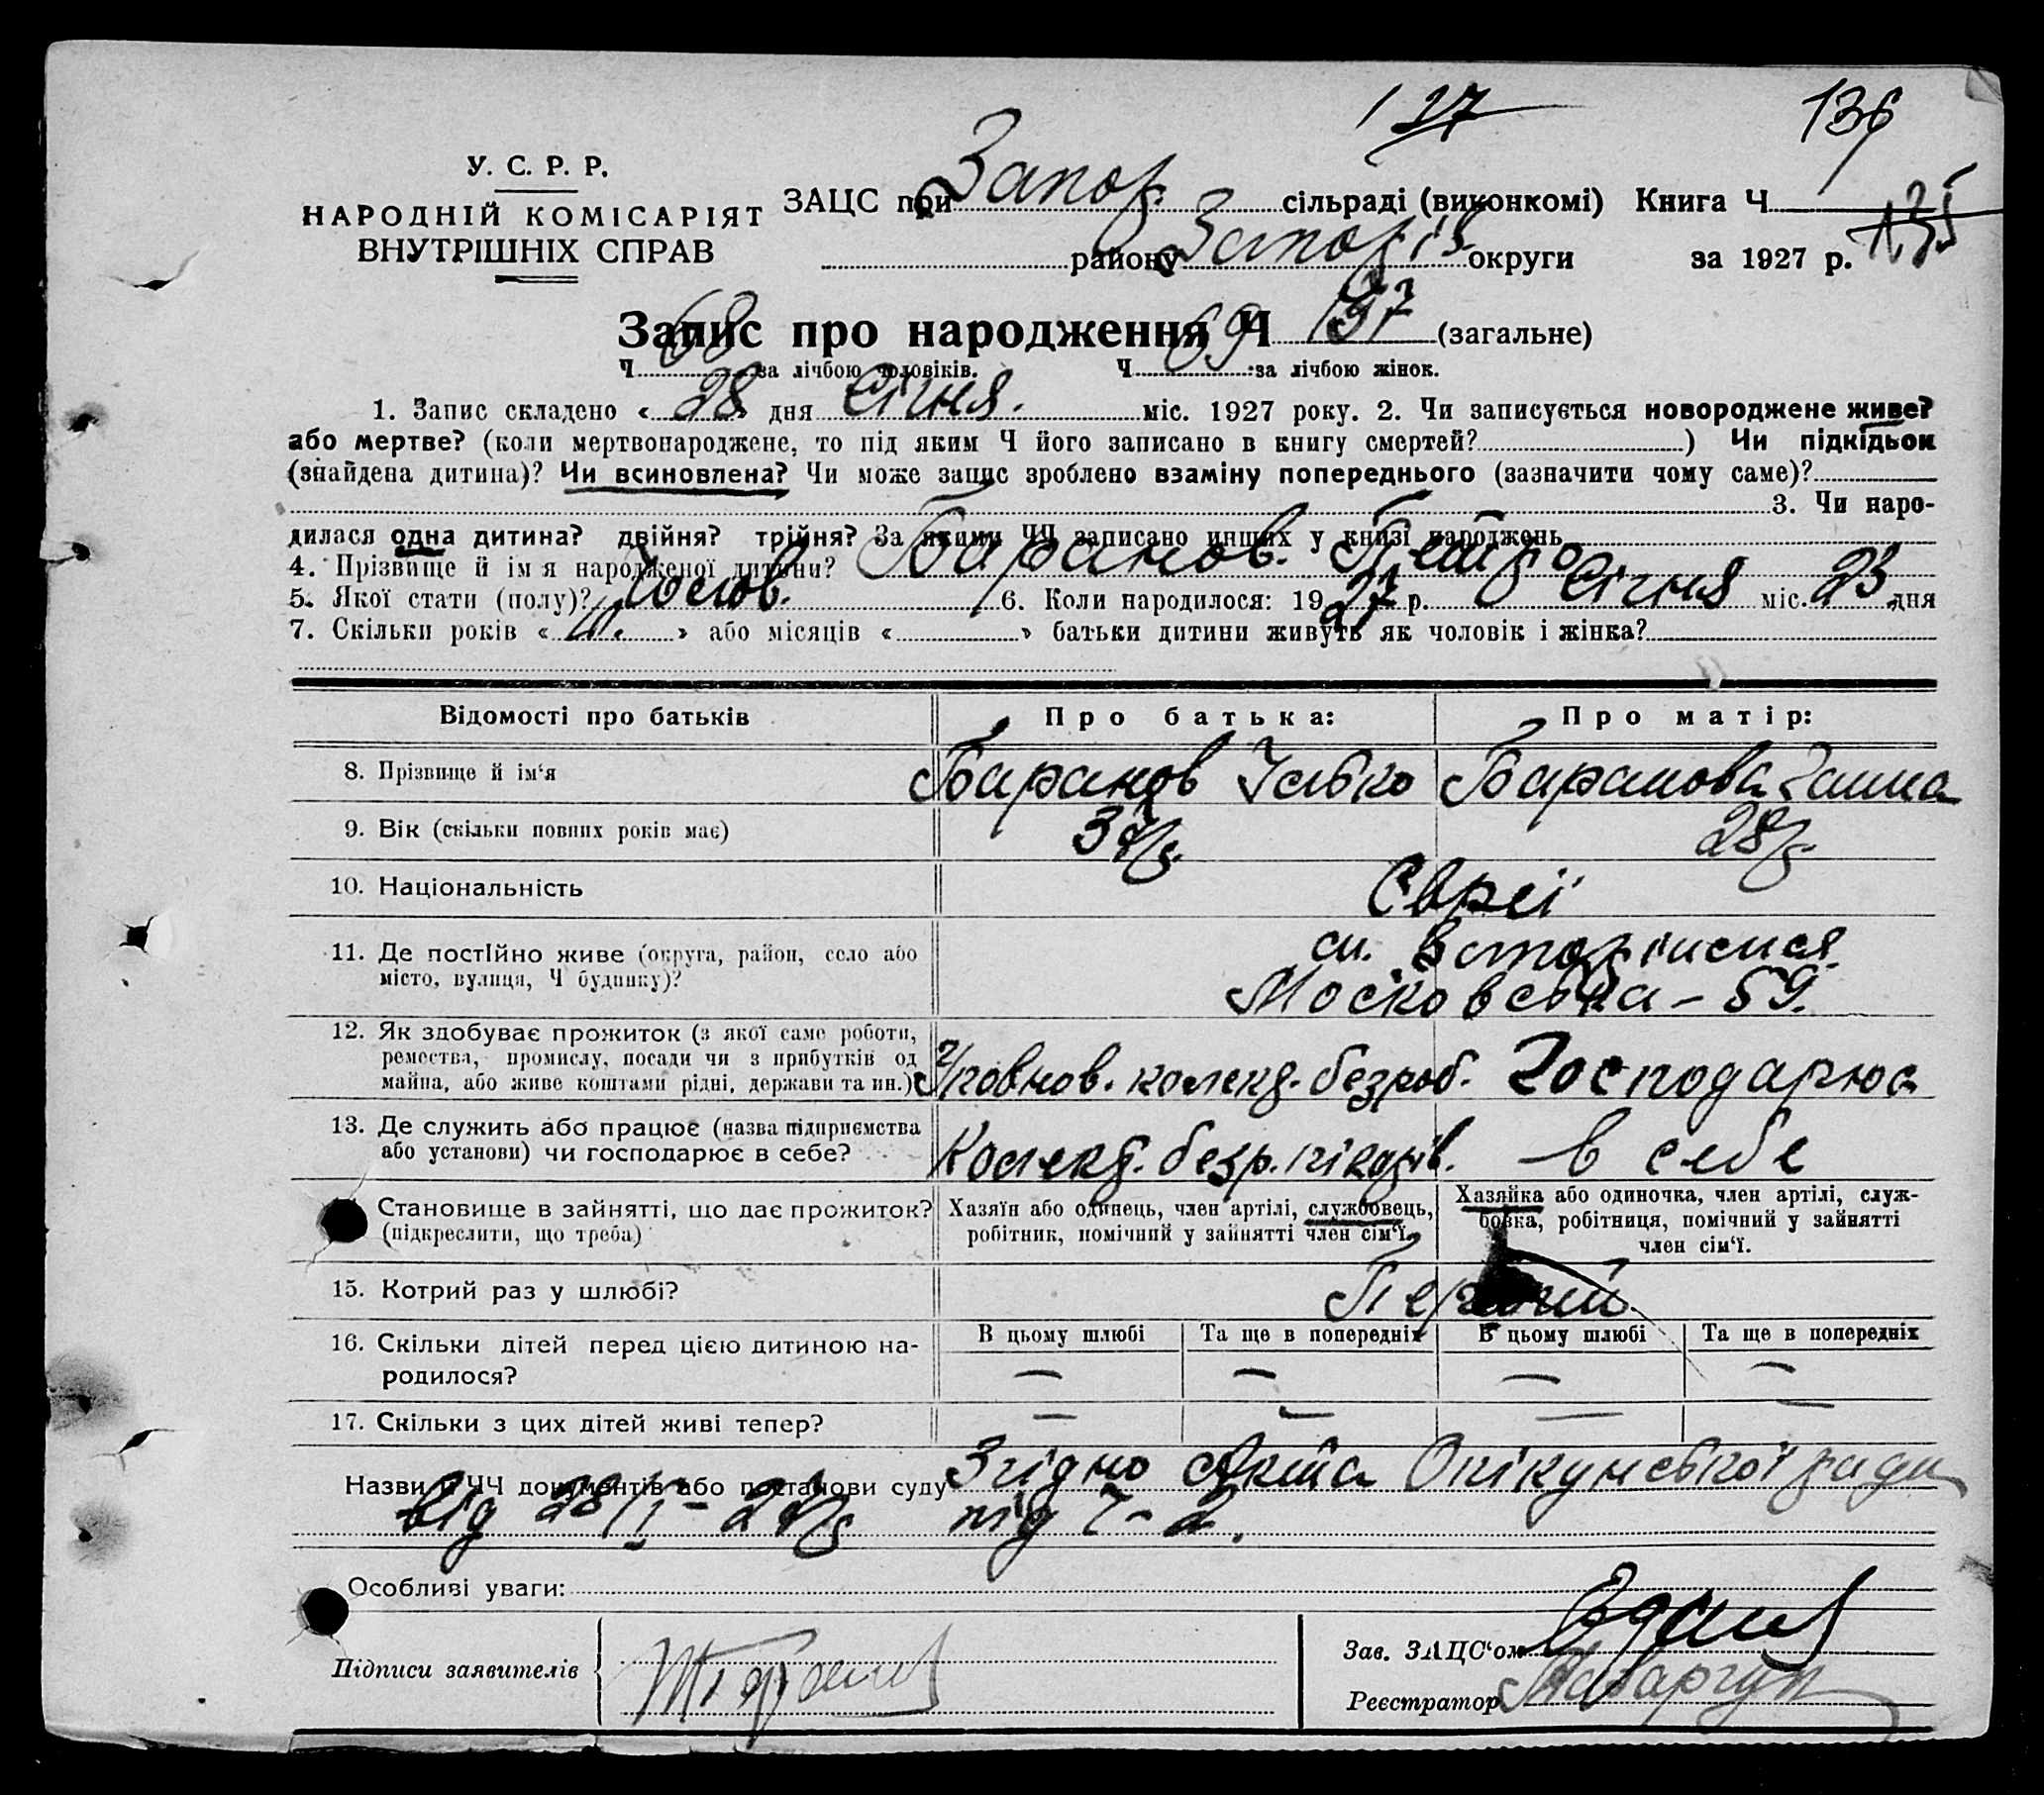 127 136
У. С. Р. Р.
НАРОДНІЙ КОМІСАРІЯТ
ВНУТРІШНІХ СПРАВ
ЗАЦС при Запор. сільраді (виконкомі) Книга Ч. 135
району Запоріз округи за 1927 р.
Запис про народження Ч 137 (загальне)
Ч 68 за лічбою чоловіків. Ч 69 за лічбою жінок.
1. Запис складено « 28 дня Січня. міс. 1927 року. 2. Чи записується новороджене живе?
або мертве? (коли мертвонароджене, то під яким Ч його записано в книгу смертей? ) Чи підкідьок
(знайдена дитина)? Чи всиновлена? Чи може запис зроблено взаміну попереднього (зазначити чому саме)?
3. Чи наро-
дилася одна дитина? двійня? трійня? За якими ЧЧ записано инших у книзі народжень
4. Прізвище й ім я народженої дитини? Баранов. Петро
5. Якої стати (полу)? Чолов. 6. Коли народилося: 19 27 р. Січня міс. 23 дня
7. Скільки років « » або місяців « » батьки дитини живуть як чоловік і жінка?
Відомості про батьків Про батька: Про матір:
8. Прізвище й ім‘я Баранов Баранова Ганна
9. Вік (скільки повних років має) 37р. 28р.
10. Національність Євреї
11. Де постійно живе (округа, район, село або
місто, вулиця, Ч будинку)?
Московська – 59.
12. Як здобуває прожиток (з якої саме роботи,
ремества, промислу, посади чи з прибутків од
майна, або живе коштами рідні, держави та ин.)
Уповнов. колект. безроб. Господарює
13. Де служить або працює (назва підприємства
або установи) чи господарює в себе?
Колект. безр. в себе
Становище в зайнятті, що дає прожиток?
(підкреслити, що треба)
Хазяїн або одинець, член артілі, службовець,
робітник, помічний у зайнятті член сім‘ї.
Хазяйка або одиночка, член артілі, служ-
бовка, робітниця, помічний у зайнятті
член сім‘ї.
15. Котрий раз у шлюбі? Перший
16. Скільки дітей перед цією дитиною на-
родилося?
В цьому шлюбі Та ще в попередніх В цьому шлюбі Та ще в попередніх
— — — —
17. Скільки з цих дітей живі тепер? — — — —
Назви й ЧЧ документів або постанови суду Згідно Акта Опікунської ради
від 28/I – 27р. під Ч– 2.
Особливі уваги:
Підписи заявителів
Зав. ЗАЦС‘ом
Реєстратор